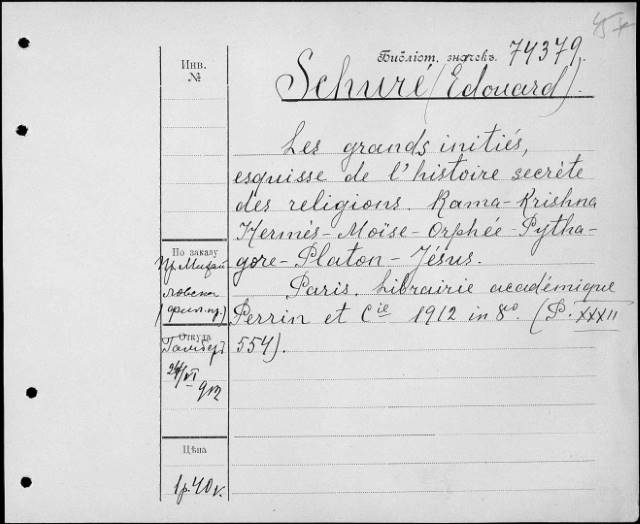 Библіот. значекъ. 74379.
Schuré (Edouard).
Les grands initiés,
esquisse de l'histoire secrète
des religions. Rama-Krishna
Hermés-Moïse-Orphée-Pytha-
gore-Platon-Jésus.
Paris. Librairie académique
Perrin et Cie 1912 in 8º. (P. XXXII
554).
Инв.
№
По заказу
Пр. Михай
ловскаго
Откуда
24/VI
912
Цѣна
1р.40к.